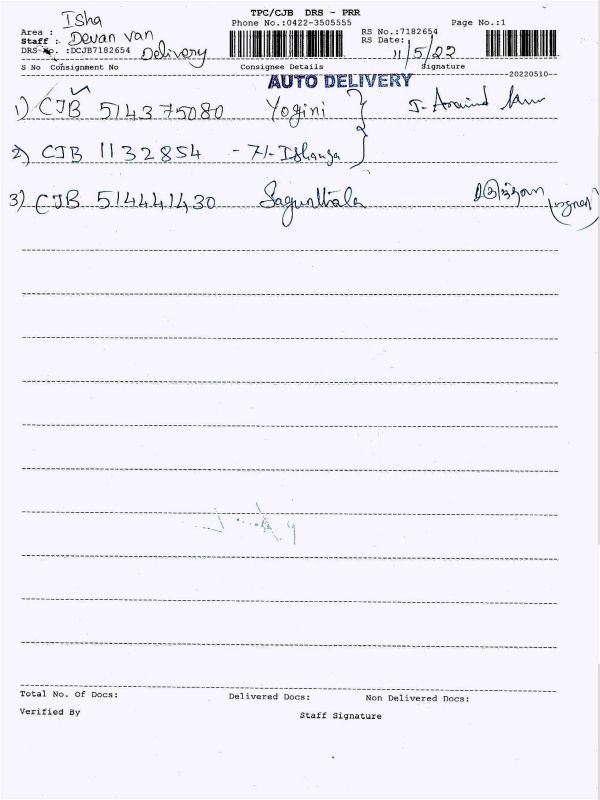 TPC/CJB DRS - PRR
Phone No.:0422-3505555 Page No.:1
Area : Isha RS No.:7182654
Staff : Devan van RS Date: 11/5/22
DRS-No. :DCJB7182654 Delivery
S No Consignment No Consignee Details Signature
AUTO DELIVERY --20220510--
1) CJB 514375080 Yogini
2) CJB 1132854 - 71- Ishanga
3) CJB 514441430 Sagunthala
Total No. Of Docs: Delivered Docs: Non Delivered Docs:
Verified By Staff Signature